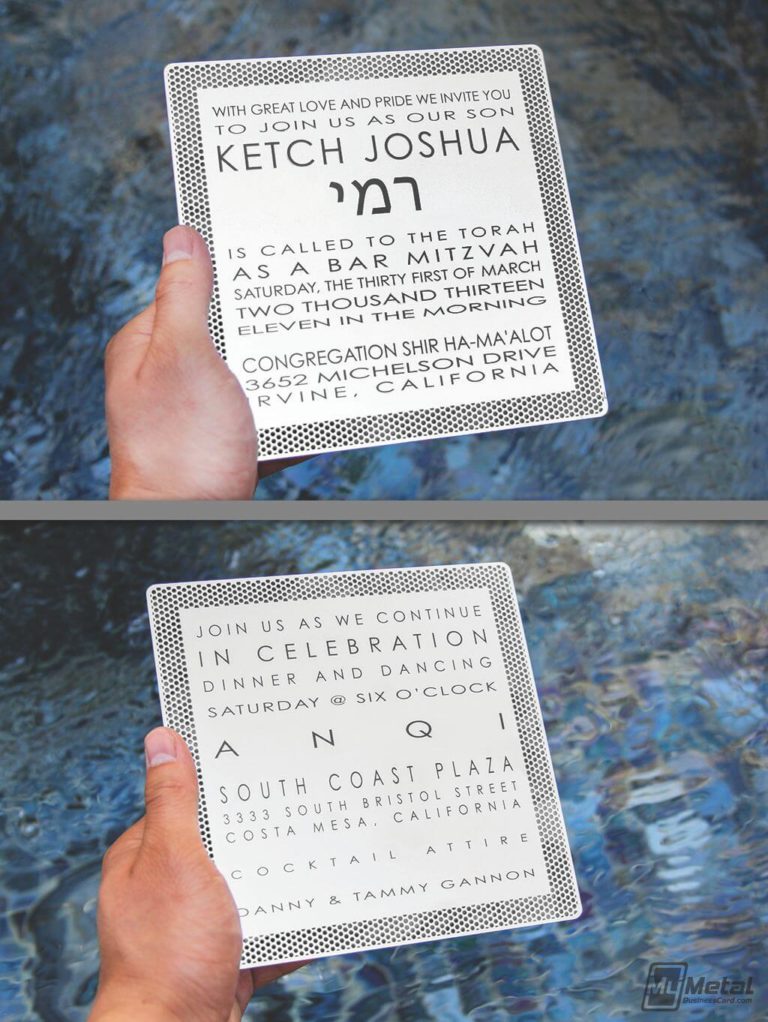 WITH GREAT LOVE AND PRIDE WE INVITE YOU
TO JOIN US AS OUR SON
KETCH JOSHUA
רמי
IS CALLED TO THE TORAH
AS A BAR MITZVAH
SATURDAY, THE THIRTY FIRST OF MARCH
TWO THOUSAND THIRTEEN
ELEVEN IN THE MORNING
CONGREGATION SHIR HA-MA'ALOT
3652 MICHELSON DRIVE
IRVINE, CALIFORNIA
JOIN US AS WE CONTINUE
IN CELEBRATION
DINNER AND DANCING
SATURDAY @ SIX O'CLOCK
ANQI
SOUTH COAST PLAZA
3333 SOUTH BRISTOL STREET
COSTA MESA, CALIFORNIA
COCKTAIL ATTIRE
DANNY & TAMMY GANNON
My Metal
BusinessCard.com